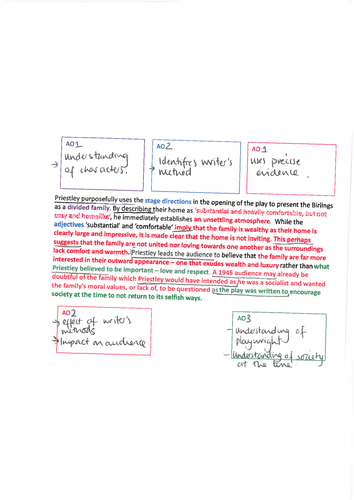 AO1
→ understanding of characters.
AO2
Identifies writer's method
AO1
uses precise evidence.
Priestley purposefully uses the stage directions in the opening of the play to present the Birlings
as a divided family. By describing their home as 'substantial and heavily comfortable, but not
cosy and homelike', he immediately establishes an unsettling atmosphere.  While the
adjectives 'substantial' and 'comfortable' imply that the family is wealthy as their home is
clearly large and impressive, it is made clear that the home is not inviting. This perhaps
suggests that the family are not united nor loving towards one another as the surroundings
lack comfort and warmth. Priestley leads the audience to believe that the family are far more
interested in their outward appearance – one that exudes wealth and luxury rather than what
Priestley believed to be important – love and respect. A 1945 audience may already be
doubtful of the family which Priestley would have intended as he was a socialist and wanted
the family's moral values, or lack of, to be questioned as the play was written to encourage
society at the time to not return to its selfish ways.
AO2
→ effect of writer's methods
→ Impact on audience
AO3
- Understanding of playwright
- Understanding of society at the time